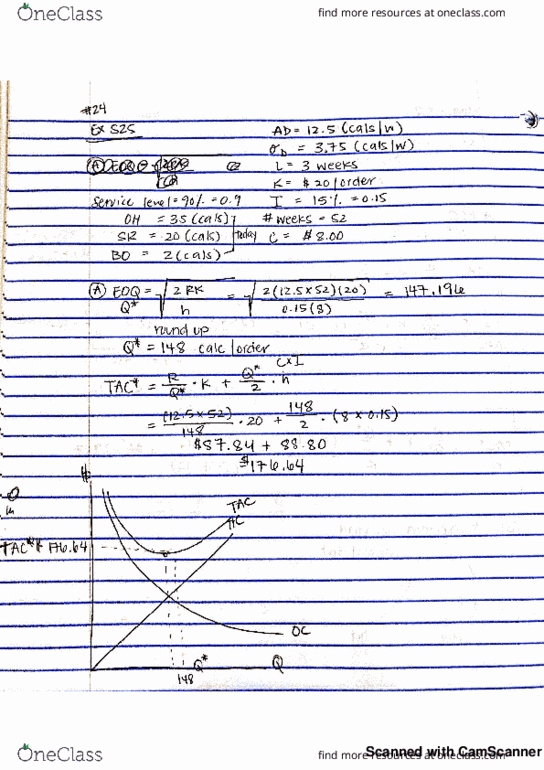 OneClass
find more resources at oneclass.com
#24
Ex S25
AD = 12.5 (cals/w)
σD = 3.75 (cals/w)
L = 3 weeks
K = $20/order
Service level = 90% = 0.9
I = 15% = 0.15
OH = 35 (cals)
# weeks = 52
SR = 20 (cals)
today
C = $8.00
BO = 2 (cals)
(A) EOQ = √2RK/h = √2(12.5×52)(20)/0.15(8) = 147.196
Q*
round up
Q* = 148 calc/order
C×I
TAC* = R/Q* · K + Q*/2 · h
= (12.5×52)/148 · 20 + 148/2 · (8×0.15)
$87.84 + 88.80
$176.64
$
TAC
HC
TAC* = 176.64
OC
Q*
Q
148
OneClass
find more resources at oneclass.com
Scanned with CamScanner